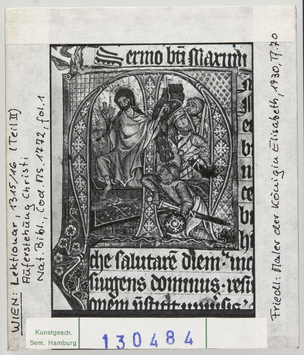 WIEN: Lektionar, 1315/16 (Teil II)
Auferstehung Christi
Nat. Bibl., Cod. ms. 1772, fol. 1
Sermo bti Maximi
che salutarē diem
surgens dominus
Friedl: Maler der Königin Elisabeth, 1930, Tf. 70
Kunstgesch.
Sem. Hamburg
130484